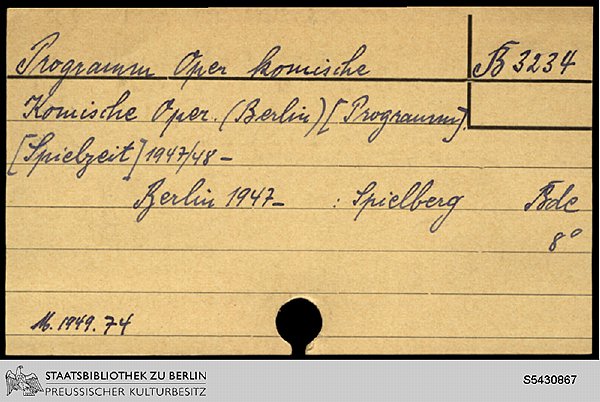 Programm Oper komische
B 3234
Komische Oper. (Berlin) [Programm].
[Spielzeit] 1947/48 –
Berlin 1947 – : Spielberg Bde
8°
M. 1949. 74
STAATSBIBLIOTHEK ZU BERLIN
PREUSSISCHER KULTURBESITZ
S5430867